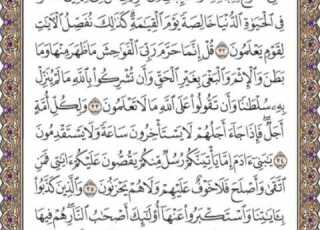 فِي ٱلْحَيَوٰةِ ٱلدُّنْيَا خَالِصَةً يَوْمَ ٱلْقِيَٰمَةِ كَذَٰلِكَ نُفَصِّلُ ٱلْءَايَٰتِ
لِقَوْمٍ يَعْلَمُونَ ٣٢ قُلْ إِنَّمَا حَرَّمَ رَبِّيَ ٱلْفَوَٰحِشَ مَا ظَهَرَ مِنْهَا وَمَا
بَطَنَ وَٱلْإِثْمَ وَٱلْبَغْيَ بِغَيْرِ ٱلْحَقِّ وَأَن تُشْرِكُوا۟ بِٱللَّهِ مَا لَمْ يُنَزِّلْ
بِهِۦ سُلْطَٰنًا وَأَن تَقُولُوا۟ عَلَى ٱللَّهِ مَا لَا تَعْلَمُونَ ٣٣ وَلِكُلِّ أُمَّةٍ
أَجَلٌ فَإِذَا جَآءَ أَجَلُهُمْ لَا يَسْتَأْخِرُونَ سَاعَةً وَلَا يَسْتَقْدِمُونَ
٣٤ يَٰبَنِىٓ ءَادَمَ إِمَّا يَأْتِيَنَّكُمْ رُسُلٌ مِّنكُمْ يَقُصُّونَ عَلَيْكُمْ ءَايَٰتِى فَمَنِ
ٱتَّقَىٰ وَأَصْلَحَ فَلَا خَوْفٌ عَلَيْهِمْ وَلَا هُمْ يَحْزَنُونَ ٣٥ وَٱلَّذِينَ كَذَّبُوا۟
بِـَٔايَٰتِنَا وَٱسْتَكْبَرُوا۟ عَنْهَآ أُو۟لَٰٓئِكَ أَصْحَٰبُ ٱلنَّارِ هُمْ فِيهَا